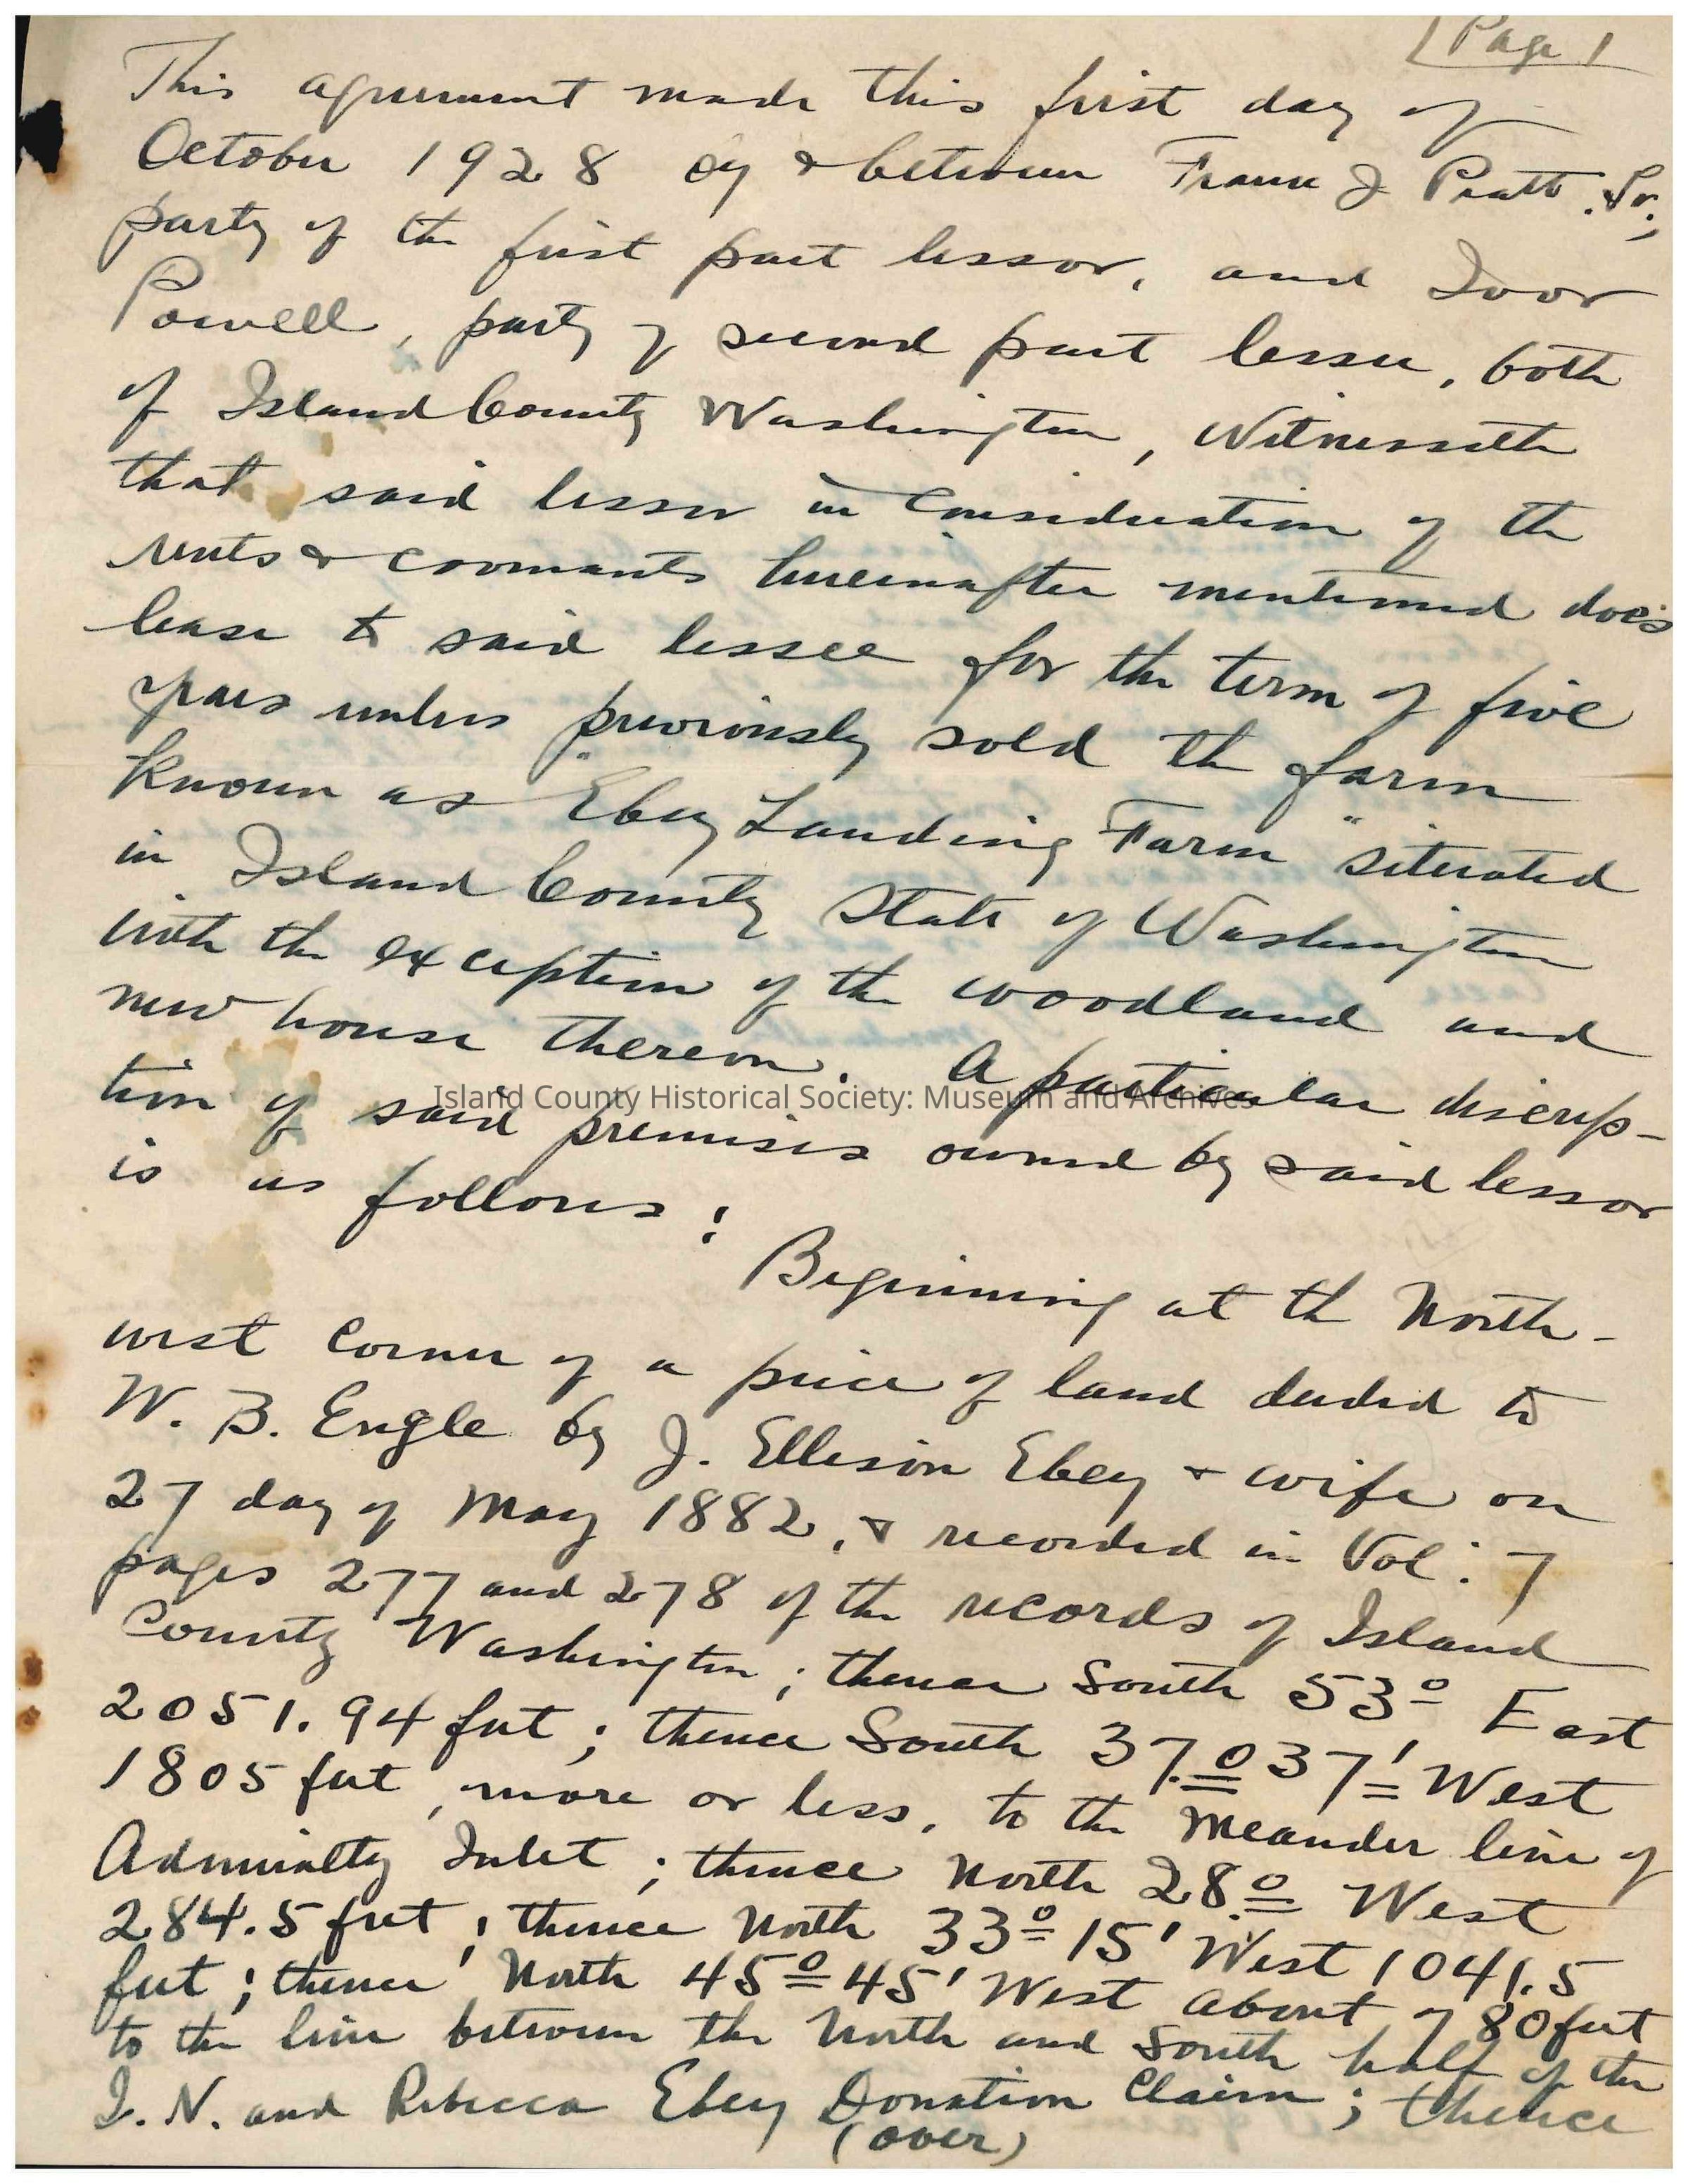 Page 1
This agreement made this first day of
October 1928 by & between Frank J Pratt, Sr.,
party of the first part lessor, and Ivor
Powell, party of second part lessee, both
of Island County Washington, Witnesseth
that said lessor in consideration of the
rents & covenants hereinafter mentioned does
lease to said lessee for the term of five
years unless previously sold the farm
known as "Ebey Landing Farm" situated
in Island County State of Washington
with the exception of the woodland and
new house thereon. A particular discrip-
tion of said premises owned by said lessor
is as follows:
Island County Historical Society: Museum and Archives
Beginning at the North-
west corner of a piece of land deeded to
W. B. Engle by J. Ellison Ebey & wife on
27 day of May 1882, & recorded in Vol. 7
pages 277 and 278 of the records of Island
County Washington; thence South 53° East
2051.94 feet; thence South 37.° 37' West
1805 feet, more or less, to the Meander line of
Admiralty Inlet; thence North 28° West
284.5 feet; thence North 33° 15' West 1041.5
feet; thence North 45° 45' West about 780 feet
to the line between the North and South half of the
I. N. and Rebecca Ebey Donation Claim; thence
(over)